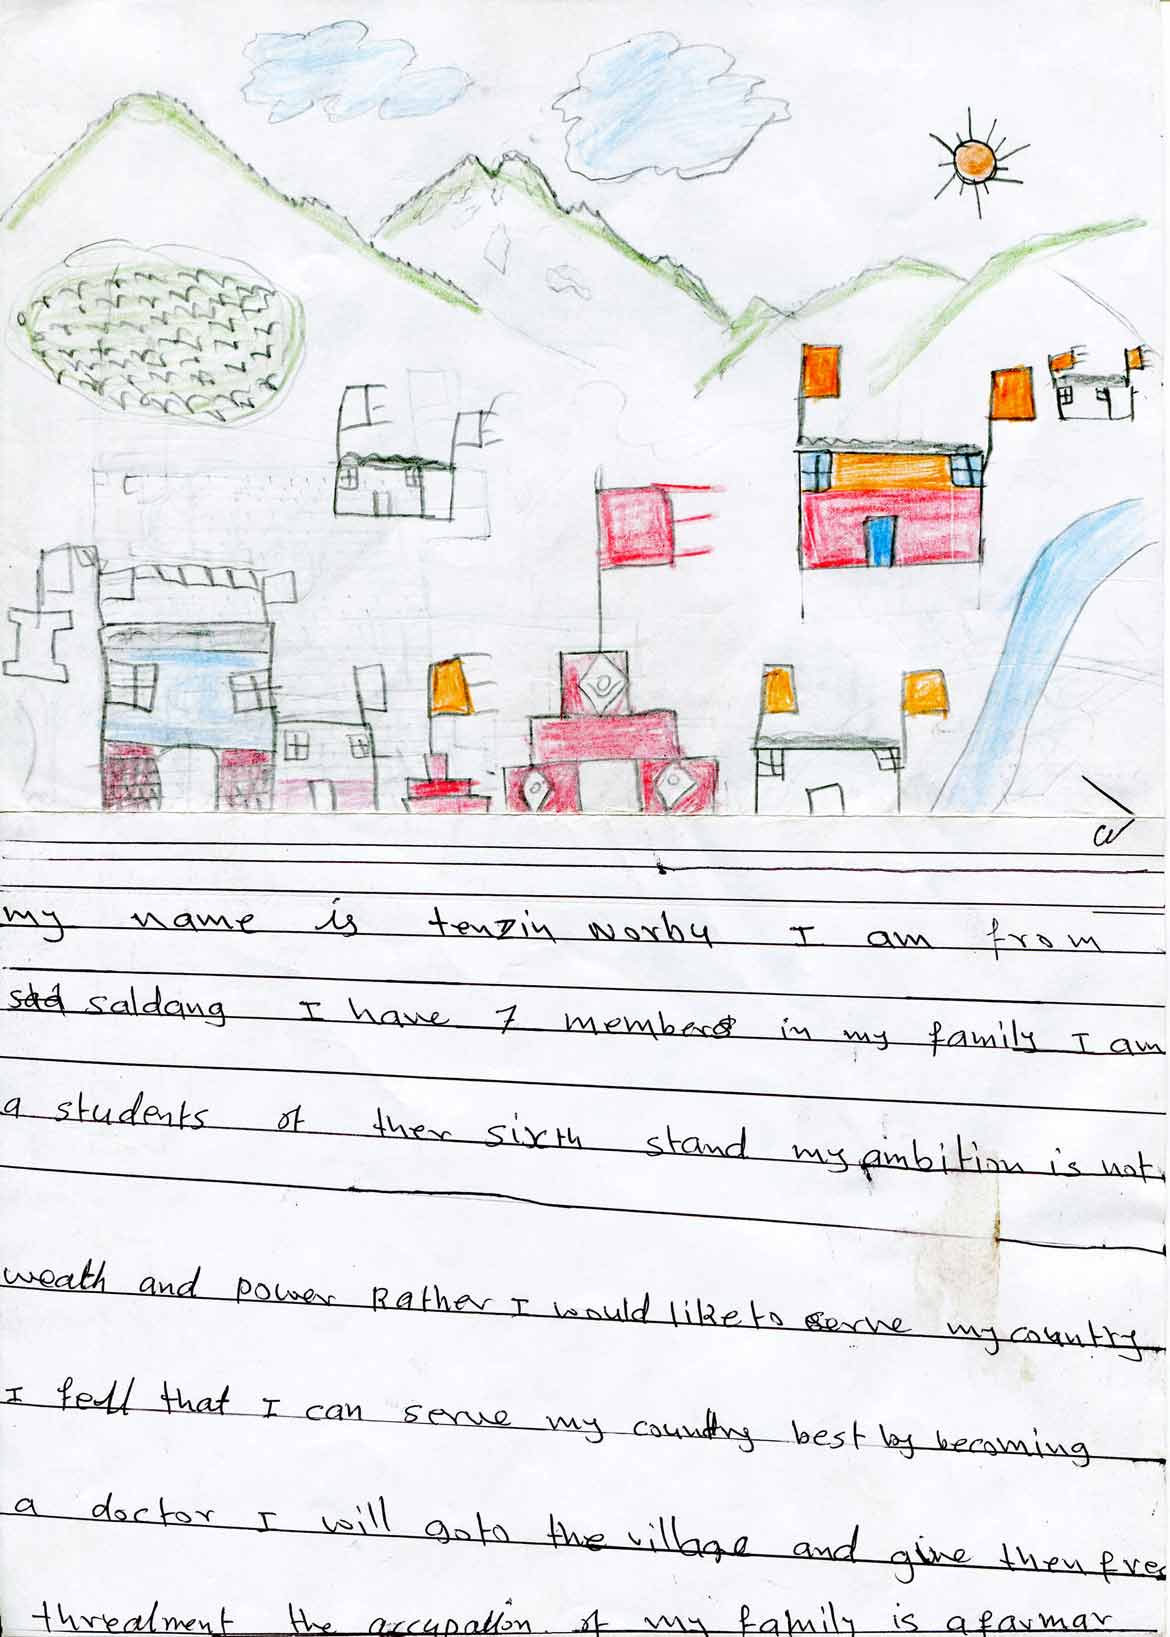 my name is tenzin Norbu I am from
saldang I have 7 members in my family I am
a students of ther sixth stand my ambition is not
weath and power Rather I would like to serve my country
I fell that I can serve my country best by becoming
a doctor I will goto the village and give then free
threalment the accupation of my family is a farmar